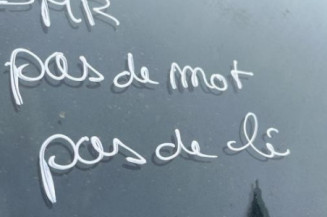 pas de mot
pas de lê